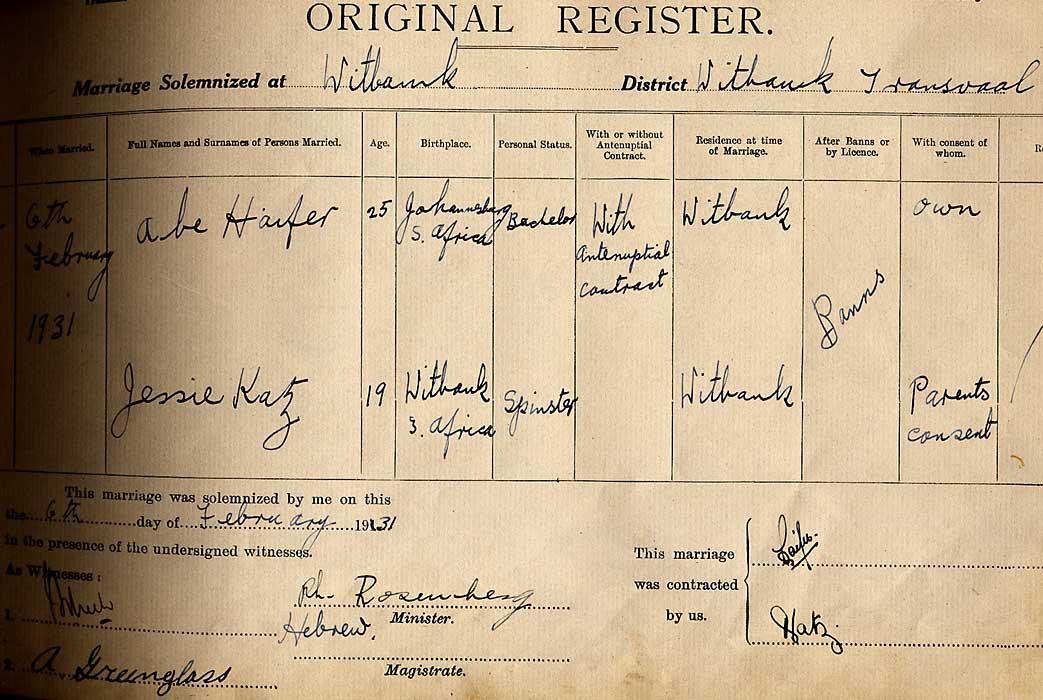 ORIGINAL REGISTER.
Marriage Solemnized at Witbank District Witbank Transvaal
When Married. Full Names and Surnames of Persons Married. Age. Birthplace. Personal Status. With or without Antenuptial Contract. Residence at time of Marriage. After Banns or by Licence. With consent of whom.
6th February 1931
Abe Haifer 25 Johannesburg S. Africa Bachelor With Antenuptial contract Witbank Banns own
Jessie Katz 19 Witbank S. Africa Spinster Witbank Parents consent
This marriage was solemnized by me on this
the 6th day of February 1931
in the presence of the undersigned witnesses.
As Witnesses:
1.
Rosenberg
Hebrew, Minister.
2. A Greenglass
Magistrate.
This marriage
was contracted
by us.
Katz